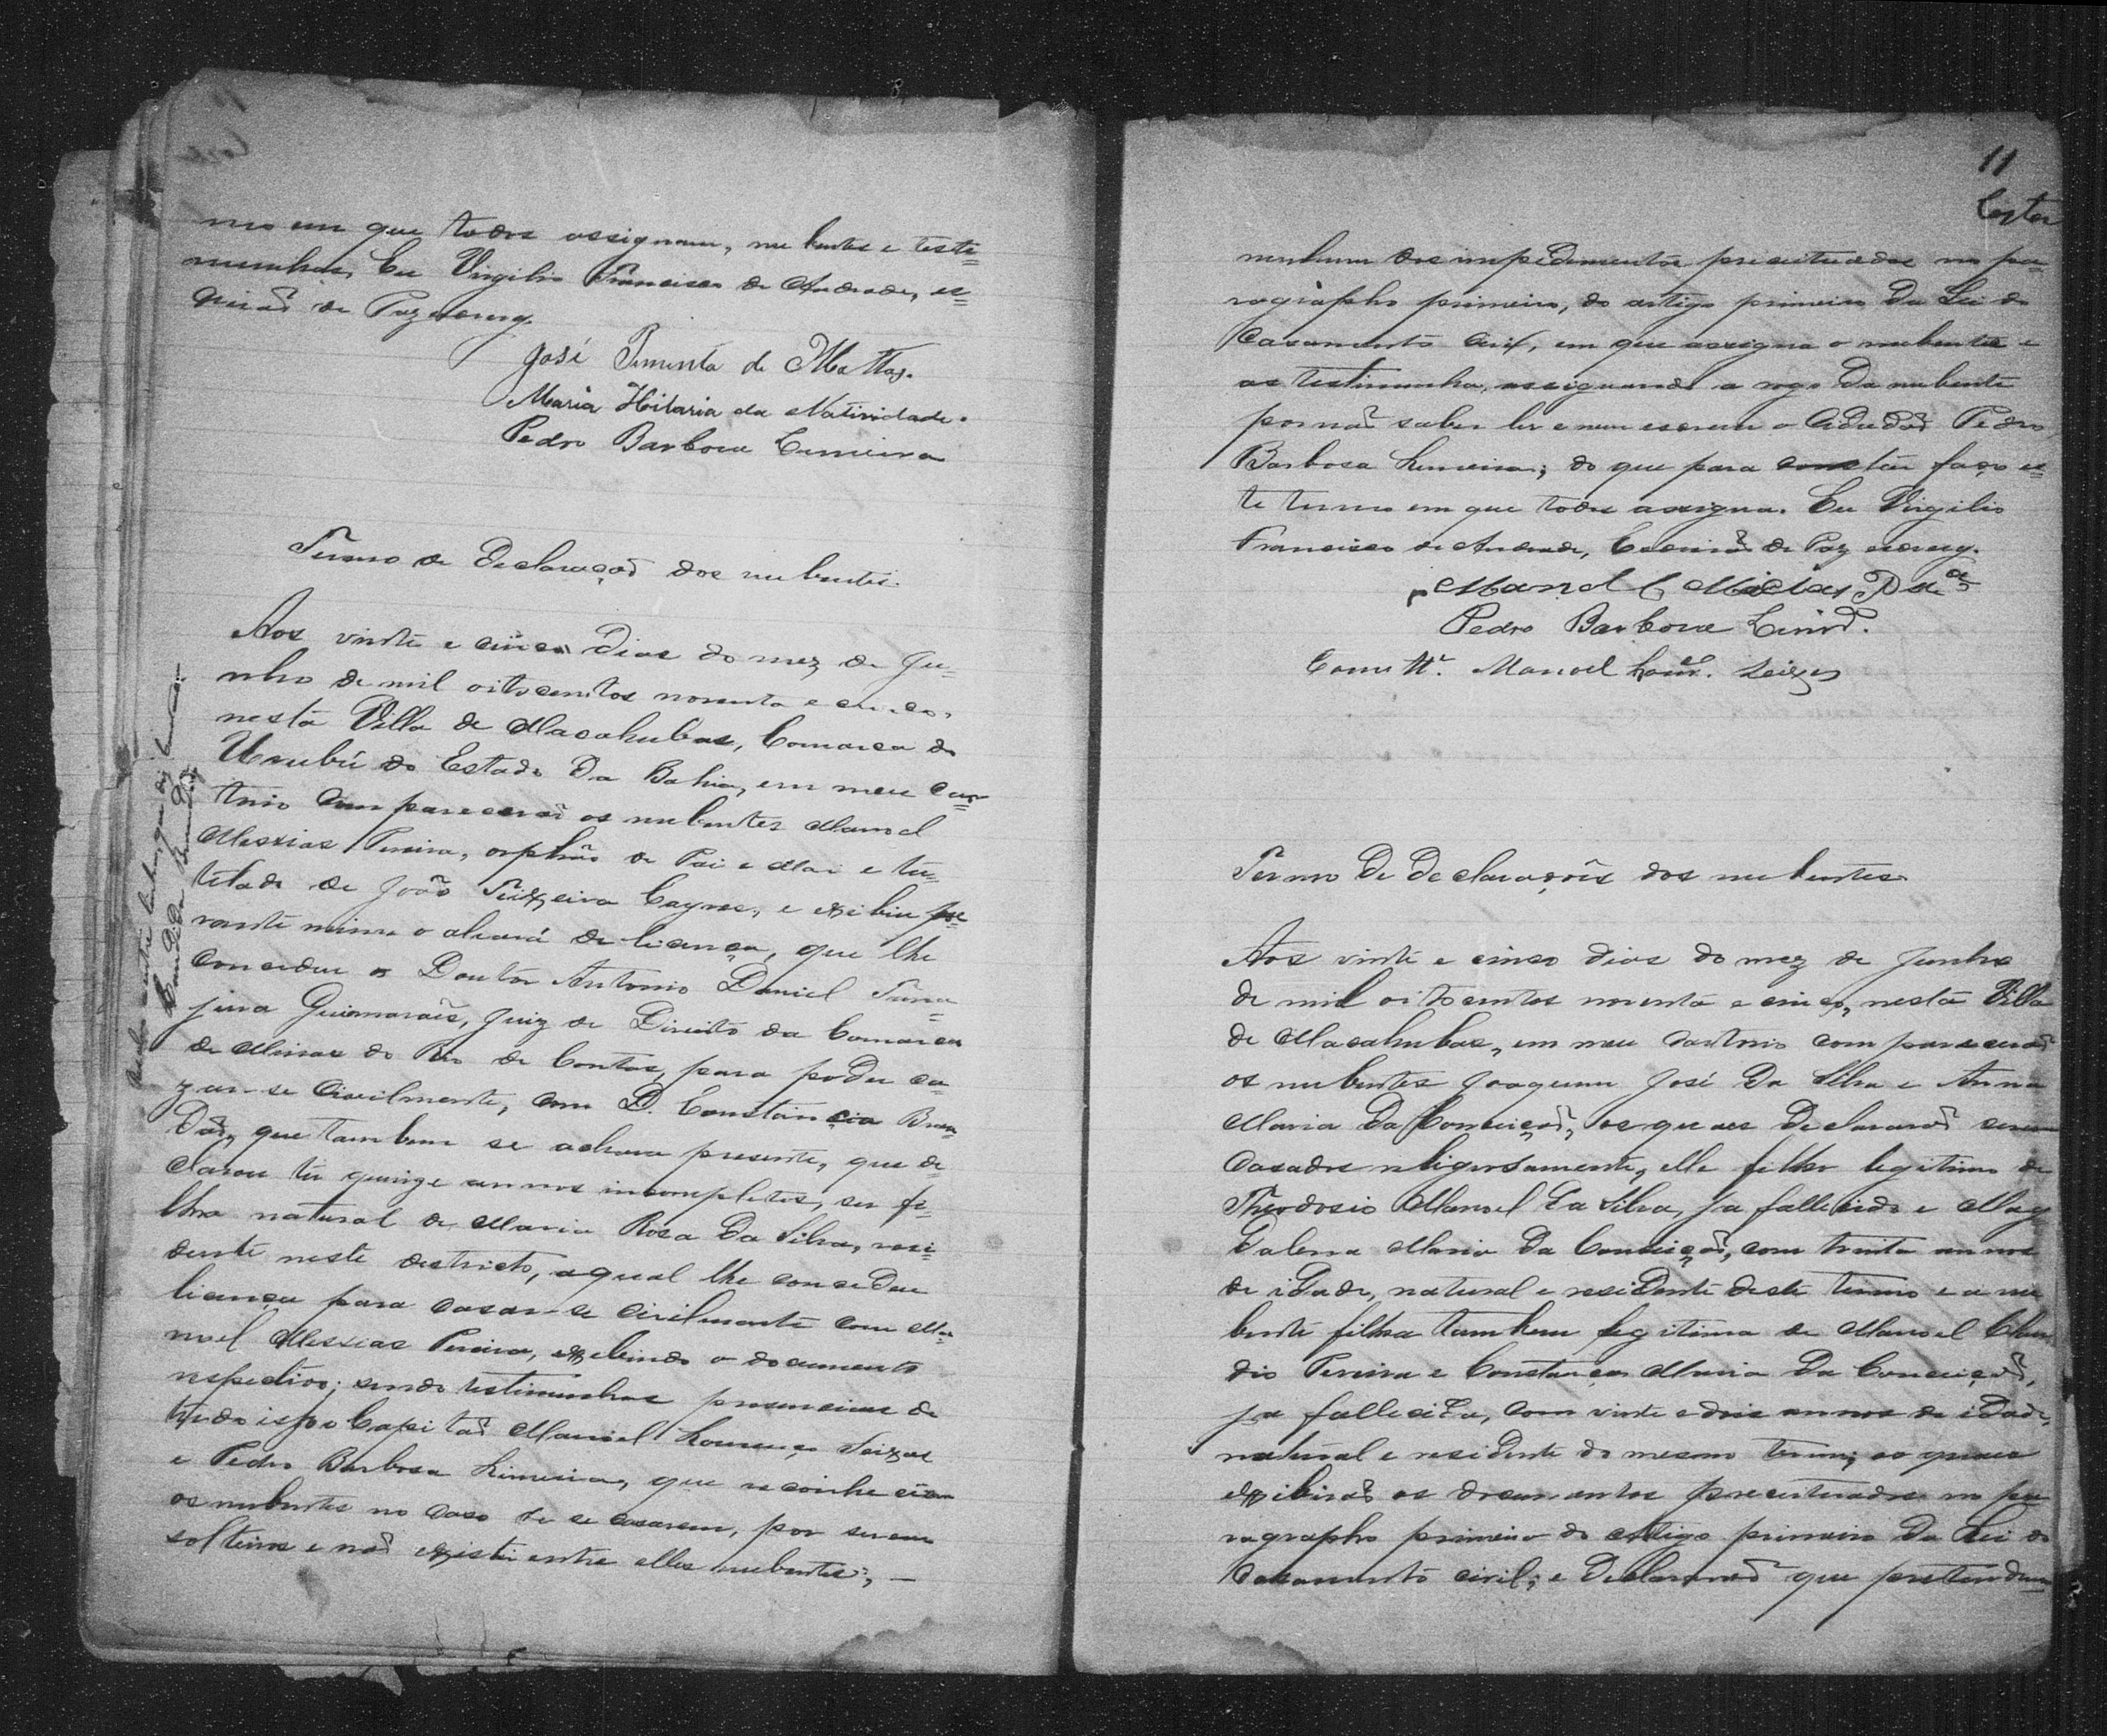 mo em que todos assignam, nubentes e teste=
munhas, Eu Virgilio Francisco de Andrade, es=
crivaõ de Paz escrevy.
José Pimenta de Mattos.
Maria Hilaria da Natividade.
Pedro Barbosa
Termo de Declaraçaõ dos nubentes.
Aos vinte e cinco Dias do mez de Ju=
nho de mil oitocentos noventa e cinco,
nesta Villa de Macahubas, Comarca do
Urubú do Estado Da Bahia, em meu car=
torio compareceraõ os nubentes Manoel
Messias Pereira, orphão de Pai e Mai e tu=
telado de João Teixeira e exibiu pe=
rante mim o alvará de licença, que lhe
concedeu o Doutor Antonio Daniel
Guimaraẽs, Juiz de Direito da Comarca
de Minas do Rio de Contas, para poder ca=
zar-se Civilmente, com D. Constancia Bran=
Daõ, que tambem se achava presente, que de=
clarou ter quinze annos incompletos, ser fi=
lha natural de Maria Rosa Da Silva, resi=
dente neste destricto, a qual lhe concedeu
licença para casar-se civilmente com Ma=
noel Messias Pereira, exebindo o documento
respectivo; sendo testimunhas presenciaes de
tudo isso o Capitaõ Manoel Lourenço Seixas
e Pedro Barbosa que reconhecem
os nubentes no caso de se casarem, por serem
solteiros e naõ existir entre elles nubentes, —
que diz
Candida
11
nenhum dos impedimentos preceituados no pa=
ragrapho primeiro, do artigo primeiro Da Lei do
Casamento Civil, em que assigna o nubente e
as testimunha, assignando a rogo Da nubente
por naõ saber ler e nem escrever o Cidadaõ Pedro
Barbosa do que para constar faço es=
te termo em que todos assigna. Eu Virgilio
Francisco de Andrade, Escrivaõ de Paz escrevy.
Manoel Messias Per.ª
Pedro Barbosa
Como tt.ª Manoel Lour.ço Seixas
Termo De Declaraçoẽs dos nubentes
Aos vinte e cinco dias do mez de Junho
de mil oitocentos noventa e cinco, nesta Villa
de Macahubas, em meu Cartorio compareceraõ
os nubentes Joaquim José Da Silva e Anna
Maria Da Conceiçaõ, os quaes Declararaõ serem
Casados religiosamente, elle filho legitimo de
Theodosio Manoel Da Silva, ja fallecido e Mag
Dalena Maria Da Conceiçaõ, com trinta annos
de idade, natural e residente deste termo e a nu
bente filha tambem legitima de Manoel Clau
dio Pereira e Constança Maria Da Conceiçaõ,
ja fallecida, com vinte e dois annos de idade,
natural e residente do mesmo termo; os quaes
exibiraõ os documentos preceituados no pa
ragrapho primeiro do artigo primeiro Da Lei do
Casamento civil; e Declararaõ que pretendem